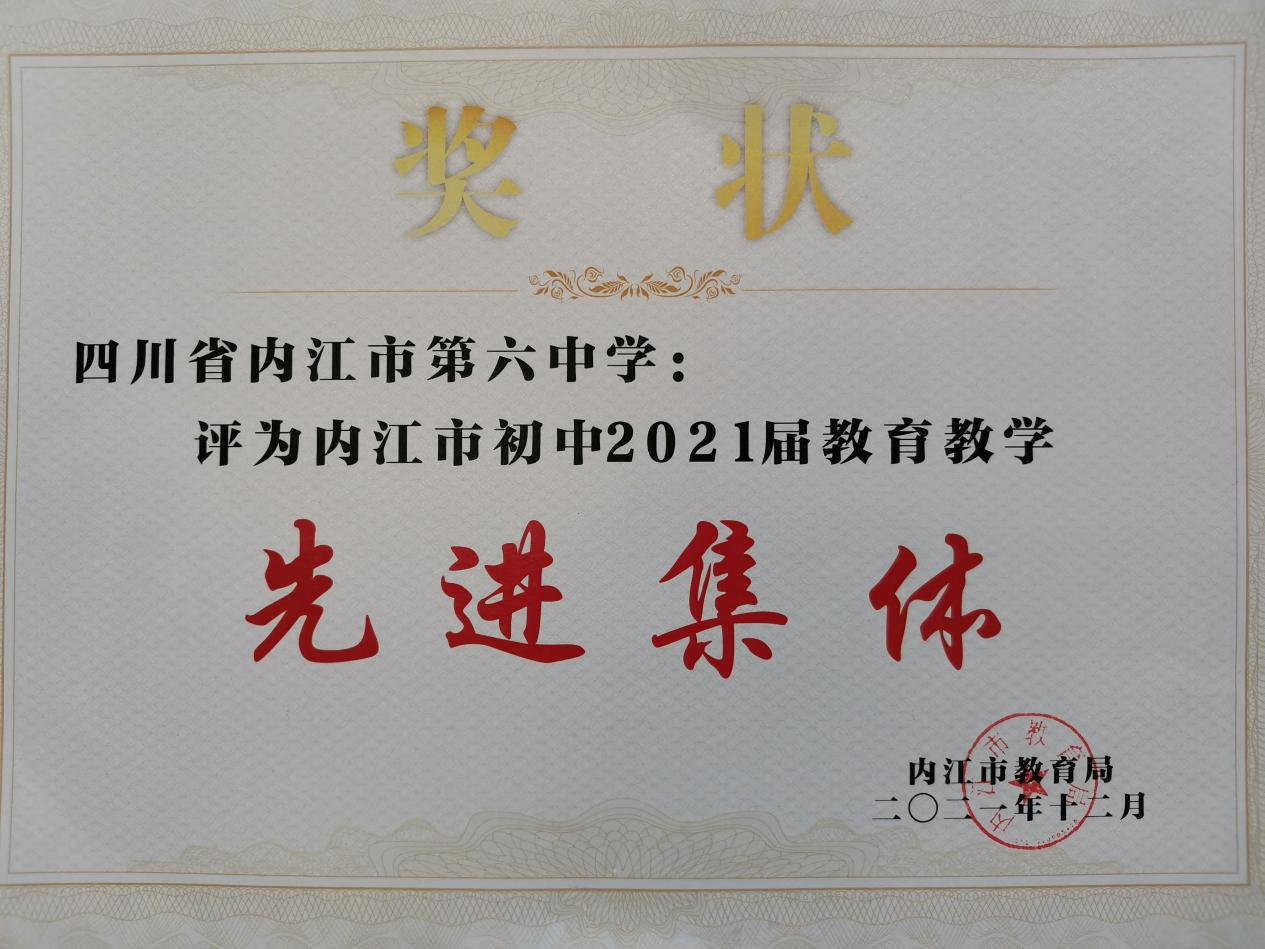 奖状
四川省内江市第六中学：
评为内江市初中2021届教育教学
先进集体
内江市教育局
二〇二一年十二月
内江市教育局